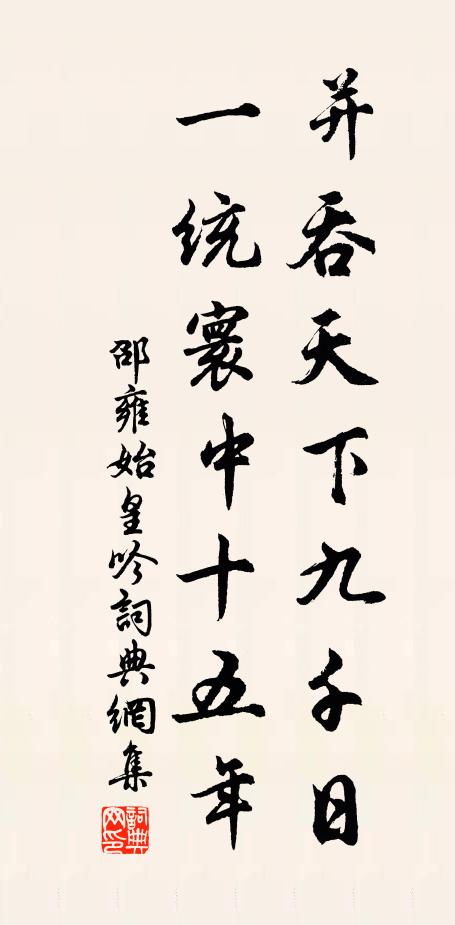 并吞天下九千日
一統寰中十五年
邵雍始皇吟詞典網集
詞典網印